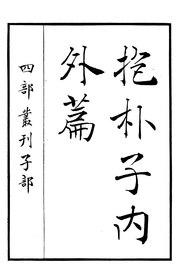 抱朴子內
外篇
四部叢刊子部